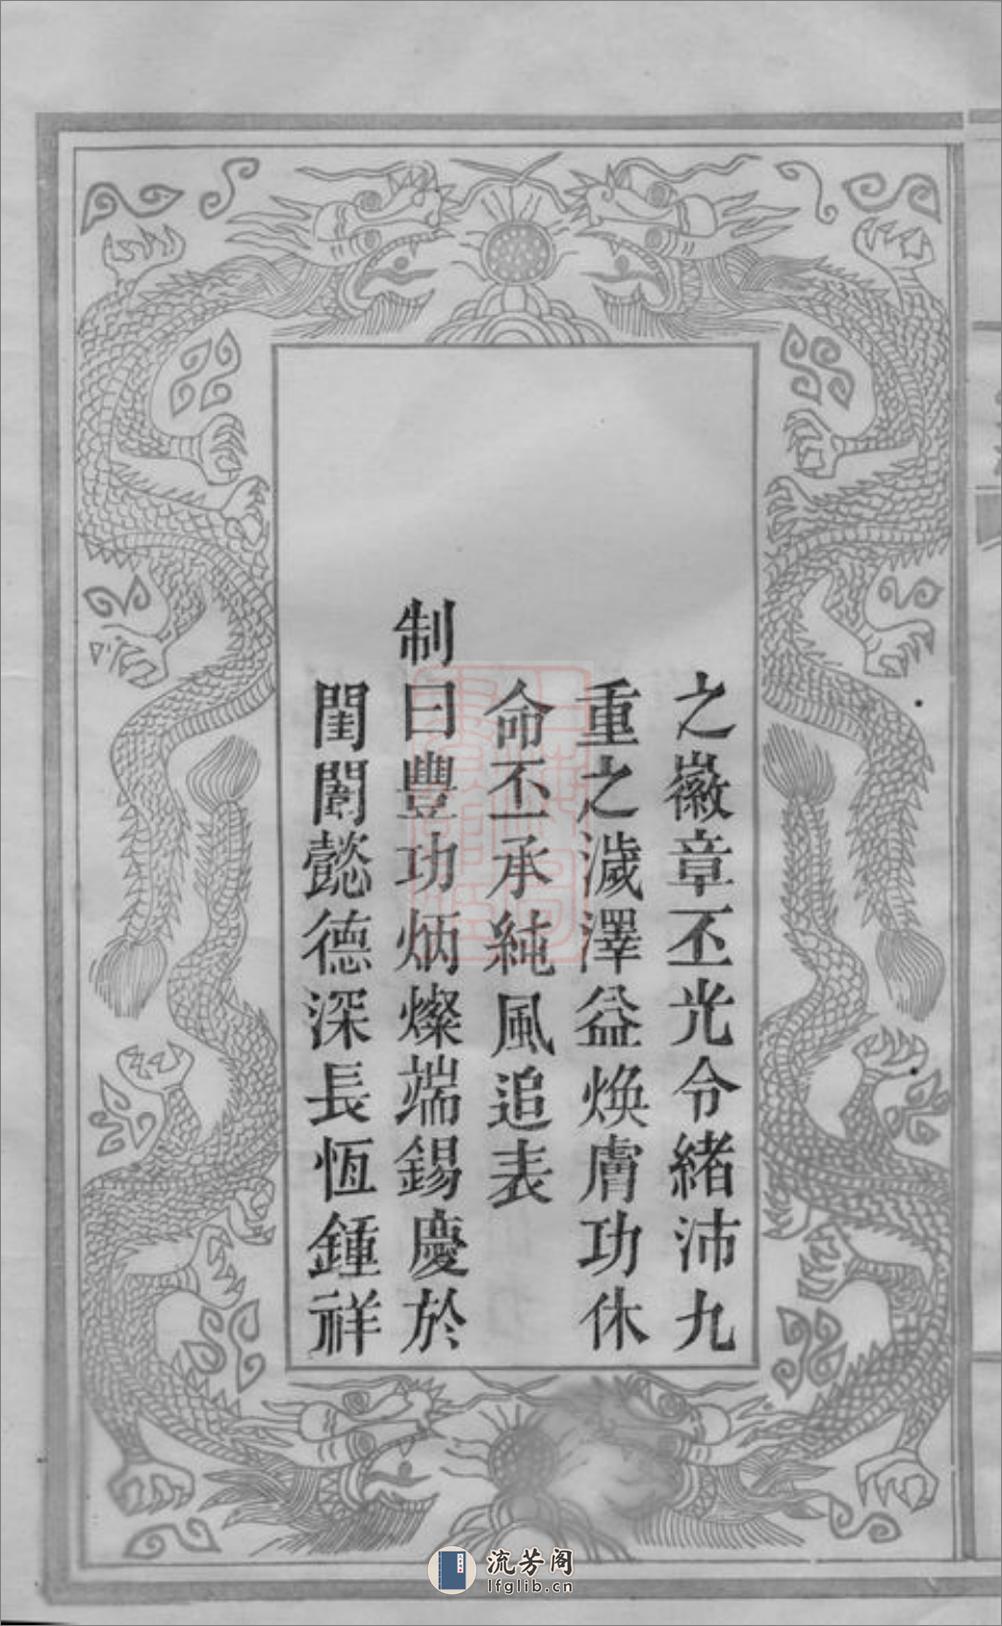 之徽章丕光令緒沛九
重之濊澤益煥膚功休
命丕承純風追表
制曰豐功炳燦端錫慶於
閨閫懿德深長恆鍾祥
流芳阁
lfglib.cn